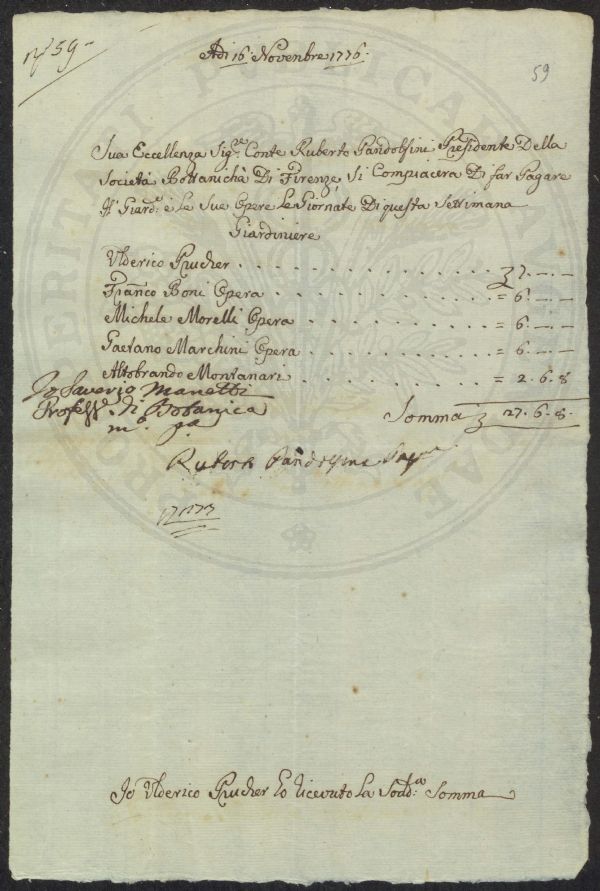 nº 59
Adi 16: Novenbre 1776:
59
Sua Eccellenza Sig:re Conte Ruberto Pandolfini Presidente Della
Società Bottanicha Di Firenze Si Compiacera Di far Pagare
Il Giard:e e Le Sue Opere Le Giornate Di questa Settimana
Giardiniere
Ulderico Prucher . . . . 7. —. —
Franco Boni Opera . . . . = 6. —. —
Michele Morelli Opera . . . . = 6. —. —
Gaetano Marchini Opera . . . . = 6. —. —
Altobrando Montanari . . . . = 2. 6. 8
Io Saverio Manetti
Profess. di Botanica
mº. pª
Somma 27. 6. 8.
Ruberto Pandolfini
Io Ulderico Prucher Ho ricevuto La Sodd:a Somma
PUBLICAE